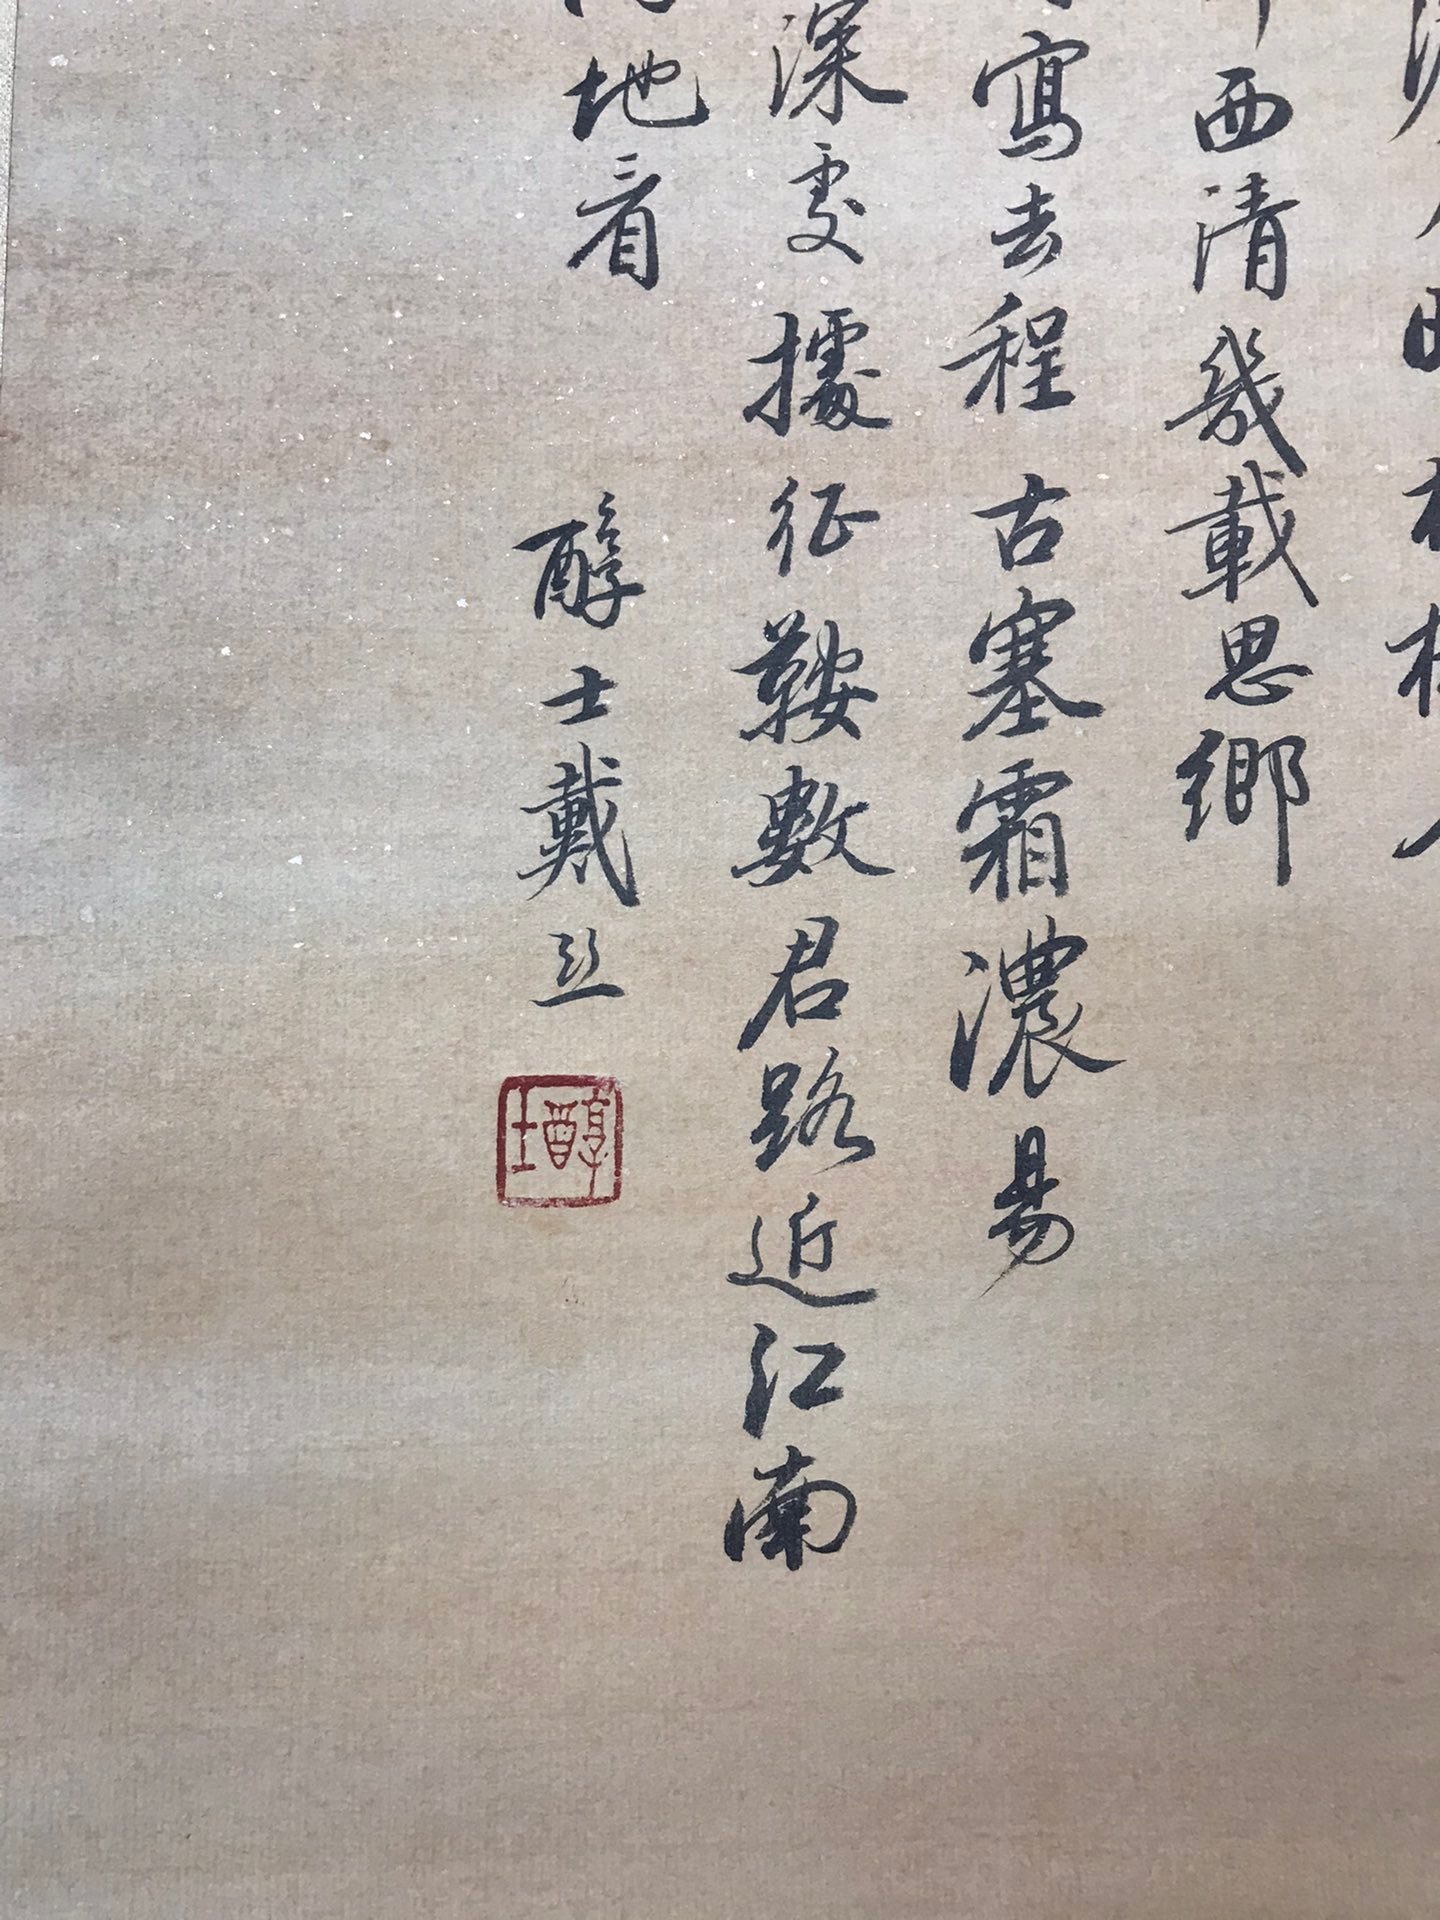 西清幾載思鄉
寫去程古塞霜濃易
深處擾征鞍數君路近江南
地看
醇士戴熙
醇士